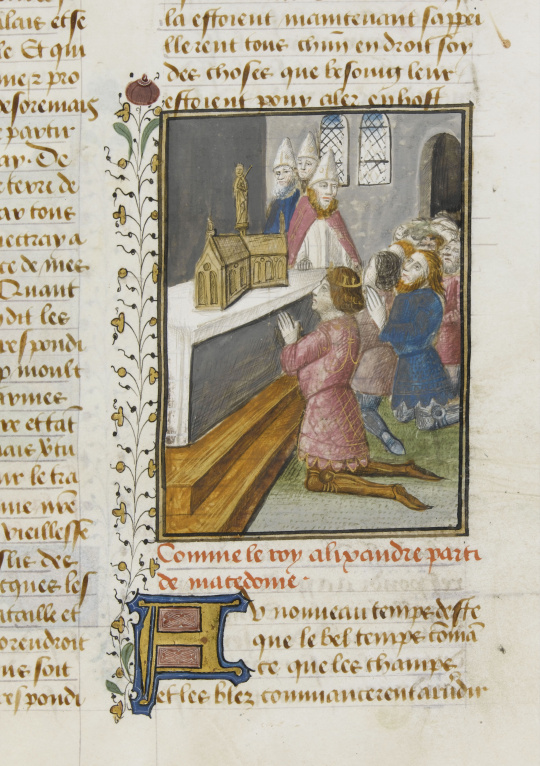 alais et se
le Et qui
me z pro
desoremais
partir
ay. De
tenu de
ay tous
nectray a
ce de mes
Quant
dit les
respondi
p moult
armes
ur le tra
me nre
vieillesse
slit des
cques les
ataille et
orendroit
ns soit
respondi
la estoient maintenant sappei
llerent tous chūn endroit soy
des choses que besoing leur
estoient pour aler en host
Comme le roy alixandre parti
de macedoine.
Au nouveau temps deste
que le bel temps cōmā
ce que les champs
et les blez commancerent a